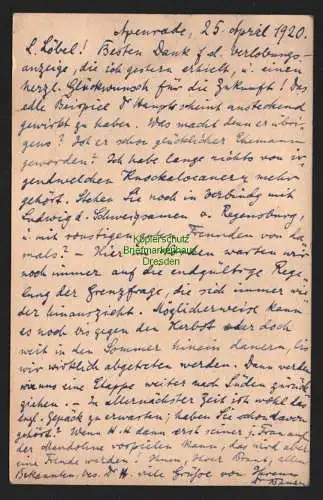 Apenrade, 25. April 1920.
L. Löbel! Besten Dank f. d. Verlobungs-
anzeige, die ich gestern erhielt, u. einen
herzl. Glückwunsch für die Zukunft! Das
edle Beispiel Dr Haupts scheint ansteckend
gewirkt zu haben. Was macht denn er übri-
gens? Ist er schon glücklicher Ehemann
geworden? Ich habe lange nichts von ir-
gendwelchen Knockaloanern mehr
gehört. Stehen Sie noch in Verbindg mit
Ludwig d. Schweigsamen v. Regensburg,
u. mit sonstigen Freunden von da-
mals? – Hier warten wir
noch immer auf die endgültige Rege-
lung der Grenzfrage, die sich immer wie-
der hinauszieht. Möglicherweise kann
es noch bis gegen den Herbst oder doch
weit in den Sommer hinein dauern, bis
wir wirklich abgetreten werden. Dann werden
wir uns eine Etappe weiter nach Süden zurück
ziehen. – In allernächster Zeit ist wohl das
engl. Gepäck zu erwarten; haben Sie schon davon
gehört? Wenn H. H. dann erst seiner j. Frau auf
der Mandoline vorspielen kann, das wird aber
eine Freude werden! Ihnen, Ihrer Braut, allen
Bekannten, bes. Dr H. viele Grüße von Ihrem
Kopierschutz
Briefmarkenhaus
Dresden